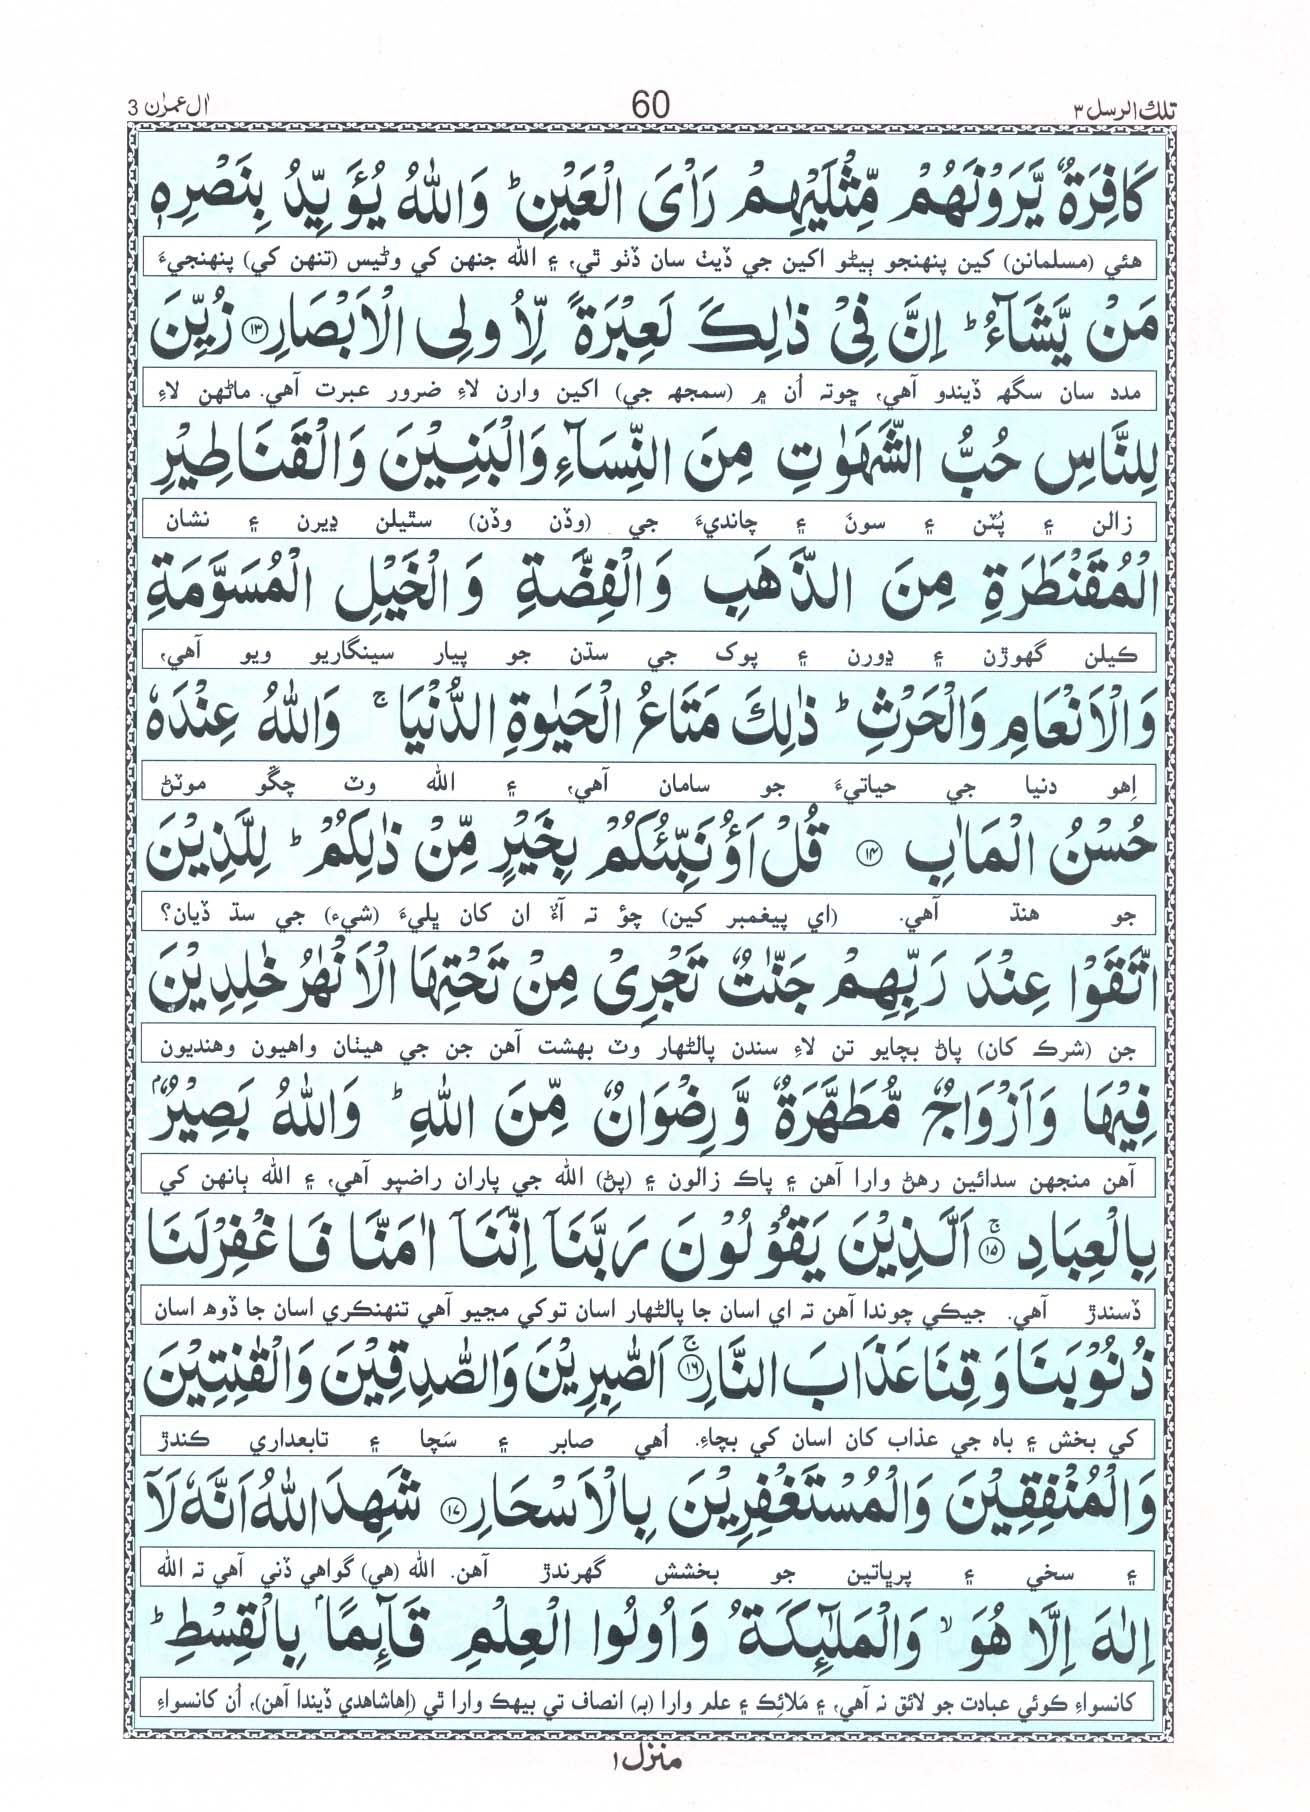 تلك الرسل ٣
60
اٰل عمرٰن 3
كَافِرَةٌ يَّرَوْنَهُمْ مِّثْلَيْهِمْ رَاْىَ الْعَيْنِ ؕ وَاللّٰهُ يُؤَيِّدُ بِنَصْرِهٖ
هئي (مسلمانن) کين پنهنجو ٻيڻو اکين جي ڏيٺ سان ڏٺو ٿي، ۽ الله جنهن کي وڻيس (تنهن کي) پنهنجيءَ
مَنْ يَّشَآءُ ؕ اِنَّ فِىْ ذٰلِكَ لَعِبْرَةً لِّاُولِى الْاَبْصَارِ ﴿١٣﴾ زُيِّنَ
مدد سان سگهه ڏيندو آهي، ڇوته اُن ۾ (سمجهه جي) اکين وارن لاءِ ضرور عبرت آهي. ماڻهن لاءِ
لِلنَّاسِ حُبُّ الشَّهَوٰتِ مِنَ النِّسَآءِ وَالْبَنِيْنَ وَالْقَنَاطِيْرِ
زالن ۽ پُٽن ۽ سونَ ۽ چانديءَ جي (وڏن وڏن) سٿيلن ڍيرن ۽ نشان
الْمُقَنْطَرَةِ مِنَ الذَّهَبِ وَالْفِضَّةِ وَالْخَيْلِ الْمُسَوَّمَةِ
ڪيلن گهوڙن ۽ ڍورن ۽ پوک جي سڌن جو پيار سينگاريو ويو آهي،
وَالْاَنْعَامِ وَالْحَرْثِ ؕ ذٰلِكَ مَتَاعُ الْحَيٰوةِ الدُّنْيَا ۚ وَاللّٰهُ عِنْدَهٗ
اِهو دنيا جي حياتيءَ جو سامان آهي، ۽ الله وٽ چڱو موٽڻ
حُسْنُ الْمَاٰبِ ﴿١٤﴾ قُلْ اَؤُنَبِّئُكُمْ بِخَيْرٍ مِّنْ ذٰلِكُمْ ؕ لِلَّذِيْنَ
جو هنڌ آهي. (اي پيغمبر کين) چؤ ته آءٌ ان کان ڀليءَ (شيء) جي سڌ ڏيان؟
اتَّقَوْا عِنْدَ رَبِّهِمْ جَنّٰتٌ تَجْرِىْ مِنْ تَحْتِهَا الْاَنْهٰرُ خٰلِدِيْنَ
جن (شرڪ کان) پاڻ بچايو تن لاءِ سندن پالڻهار وٽ بهشت آهن جن جي هيٺان واهيون وهنديون
فِيْهَا وَاَزْوَاجٌ مُّطَهَّرَةٌ وَّرِضْوَانٌ مِّنَ اللّٰهِ ؕ وَاللّٰهُ بَصِيْرٌۢ
آهن منجهن سدائين رهڻ وارا آهن ۽ پاڪ زالون ۽ (پڻ) الله جي پاران راضپو آهي، ۽ الله ٻانهن کي
بِالْعِبَادِ ﴿١٥﴾ ۚ اَلَّذِيْنَ يَقُوْلُوْنَ رَبَّنَآ اِنَّنَآ اٰمَنَّا فَاغْفِرْلَنَا
ڏسندڙ آهي. جيڪي چوندا آهن ته اي اسان جا پالڻهار اسان توکي مڃيو آهي تنهنڪري اسان جا ڏوهه اسان
ذُنُوْبَنَا وَقِنَا عَذَابَ النَّارِ ﴿١٦﴾ ۚ اَلصّٰبِرِيْنَ وَالصّٰدِقِيْنَ وَالْقٰنِتِيْنَ
کي بخش ۽ باهه جي عذاب کان اسان کي بچاءِ. اُهي صابر ۽ سَچا ۽ تابعداري ڪندڙ
وَالْمُنْفِقِيْنَ وَالْمُسْتَغْفِرِيْنَ بِالْاَسْحَارِ ﴿١٧﴾ شَهِدَ اللّٰهُ اَنَّهٗ لَآ
۽ سخي ۽ پرڀاتين جو بخشش گهرندڙ آهن. الله (هي) گواهي ڏني آهي ته الله
اِلٰهَ اِلَّا هُوَ ۙ وَالْمَلٰٓئِكَةُ وَاُولُوا الْعِلْمِ قَآئِمًاۢ بِالْقِسْطِ ؕ
کانسواءِ ڪوئي عبادت جو لائق نه آهي، ۽ مَلائِڪ ۽ علم وارا (به) انصاف تي بيهڪ وارا ٿي (اِهاشاهدي ڏيندا آهن)، اُن کانسواءِ
منزل ١